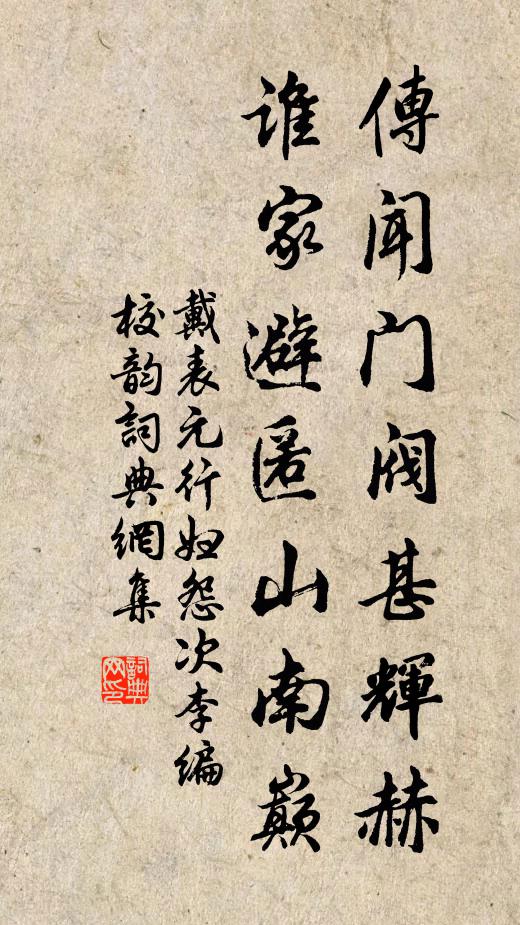 傳聞門閥甚輝赫
誰家避匿山南巔
戴表元行婦怨次李編
校韵詞典網集
詞典
网印